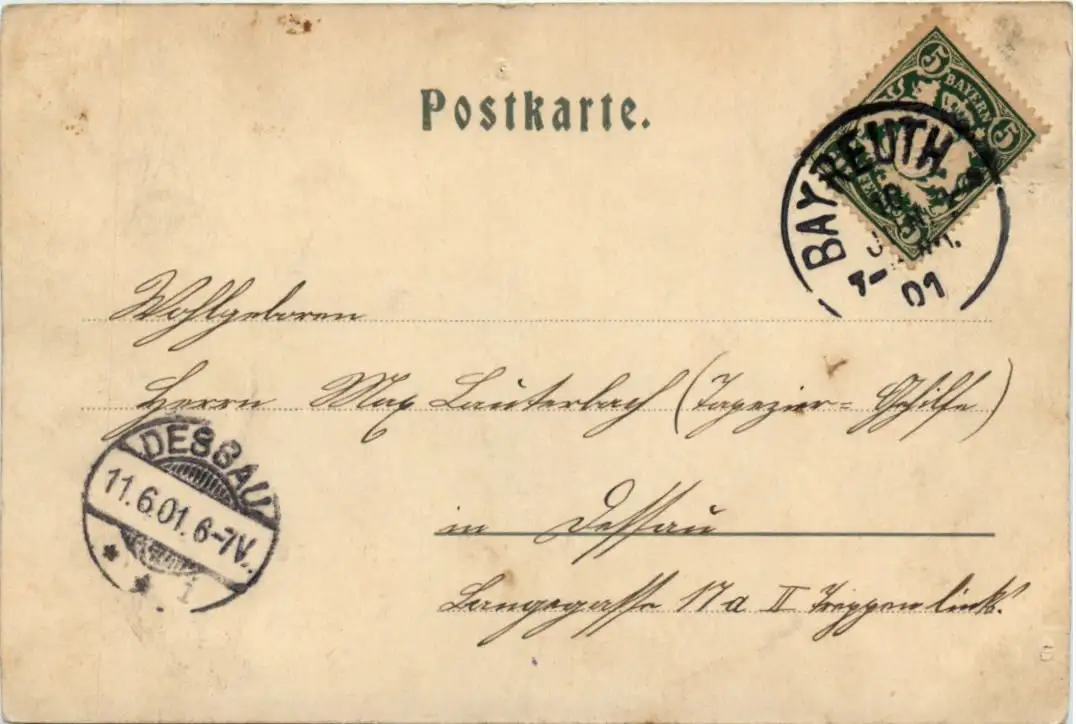 Postkarte.
5 BAYERN 5
BAYREUTH
01
Wohlgeboren
Herrn Max Lauterbach (Tapezier-Gehilfe)
in Dessau
Langegasse 17a II Treppen links.
DESSAU
11.6.01.6-7V.
* * 1